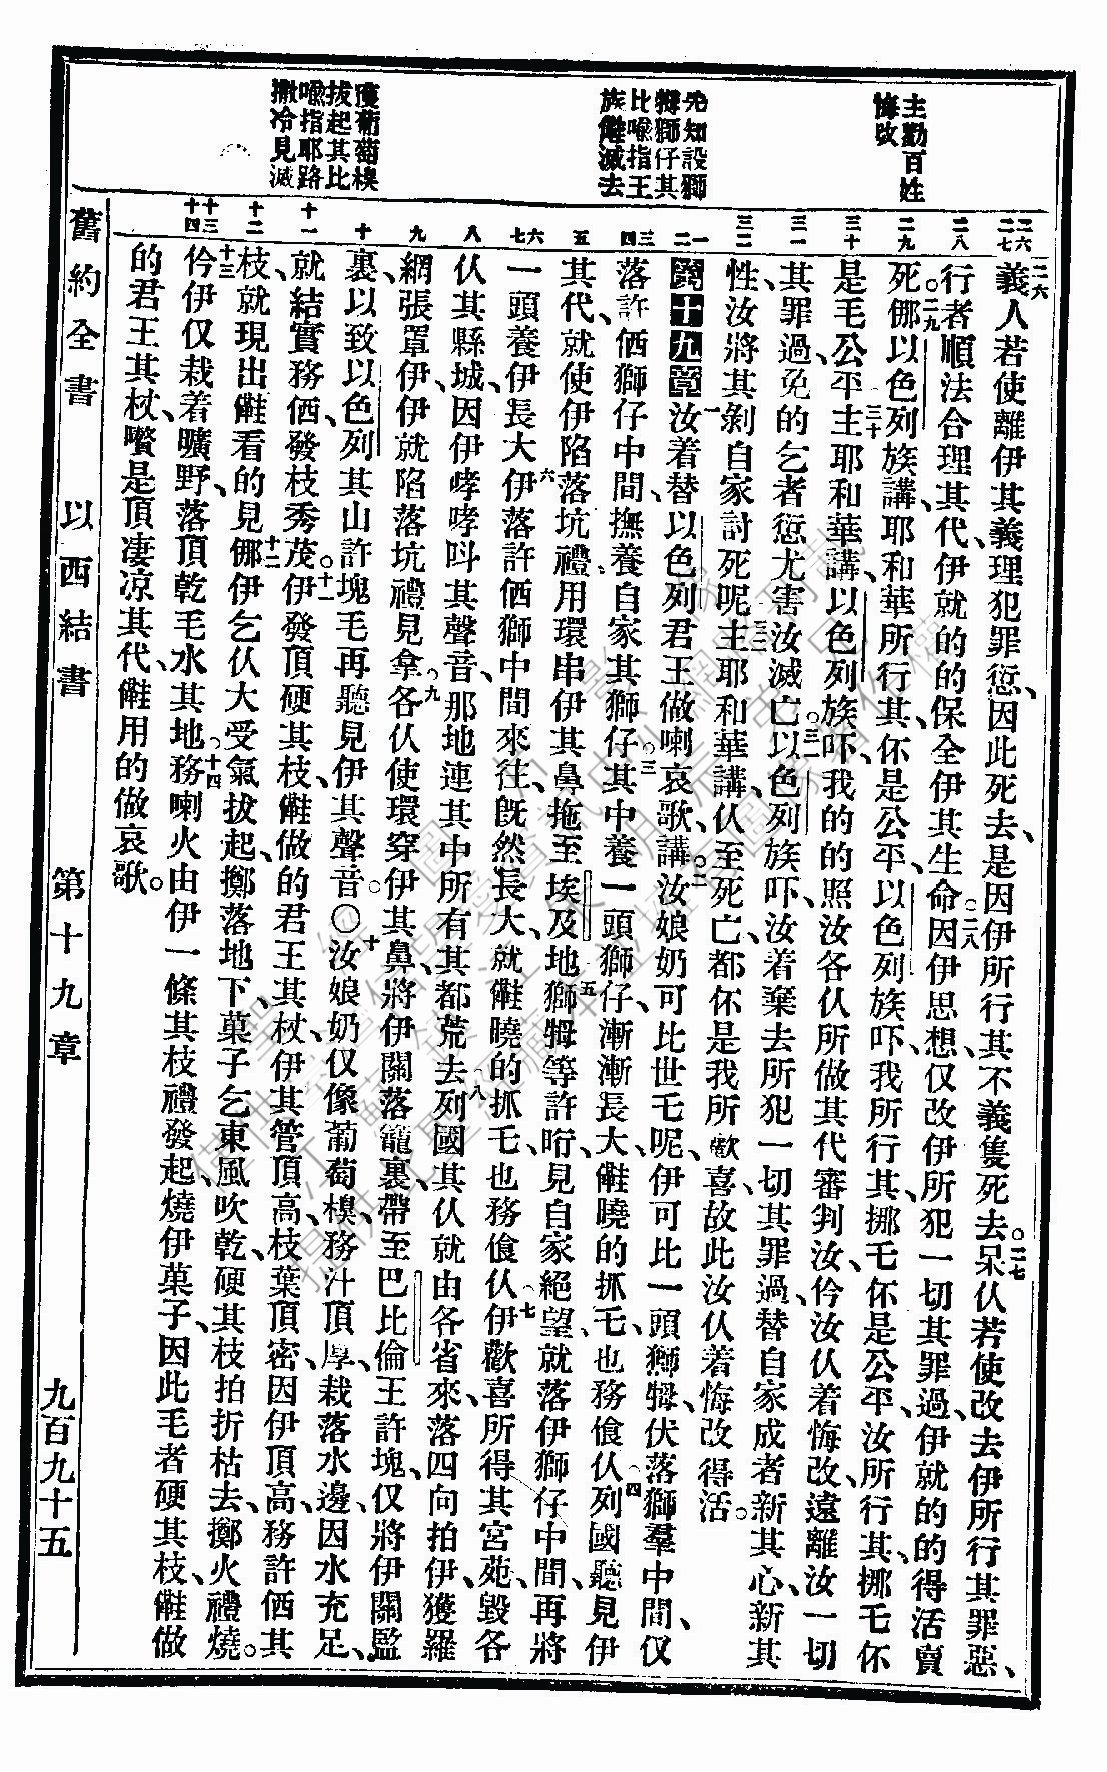 主勸百姓
悔改
先知設獅
獅仔其
比喻指王
族滅去
葡萄模
拔起其比
喻指耶路
撒冷見滅
二六
二七
二八
二九
三十
三一
三二
一
二
三
四
五
六
七
八
九
十
十一
十二
十三
十四
二六義人若使離伊其義理犯罪愆、因此死去、是因伊所行其不義隻死去。二七呆仈若使改去伊所行其罪惡、
行者順法合理其代、伊就的的保全伊其生命。二八因伊思想、仅改伊所犯一切其罪過、伊就的的得活賣
死。二九㑚以色列族講、耶和華所行其、伓是公平、以色列族吓、我所行其、挪乇伓是公平、汝所行其、挪乇伓
是毛公平。三十主耶和華講、以色列族吓、我的的照汝各仈所做其代審判汝、仱汝仈着悔改、遠離汝一切
其罪過、免的乞者愆尤害汝滅亡。三一以色列族吓、汝着棄去所犯一切其罪過、替自家成者新其心、新其
性、汝將其剝自家討死呢。三二主耶和華講、仈至死亡、都伓是我所歡喜、故此汝仈着悔改得活。
第十九章 一汝着替以色列君王做喇哀歌、二講、汝娘奶可比世乇呢、伊可比一頭獅㹀、伏落獅羣中間、仅
落許𠲥獅仔中間、撫養自家其獅仔。三其中養一頭獅仔、漸漸長大、䧹曉的抓乇、也務飡仈。四列國聽見伊
其代、就使伊陷落坑禮、用環串伊其鼻、拖至埃及地。五獅㹀等許晌、見自家絕望、就落伊獅仔中間、再將
一頭養伊長大。六伊落許𠲥獅中間來往、旣然長大、就䧹曉的抓乇、也務飡仈。七伊歡喜所得其宮苑、毀各
仈其縣城、因伊哮哮呌其聲音、那地連其中所有其都荒去。八列國其仈就由各省來、落四向拍伊、獲羅
網張罩伊、伊就陷落坑禮見拿。九各仈使環穿伊其鼻、將伊關落籠裏、帶至巴比倫王許塊、仅將伊關監
裏、以致以色列其山許塊毛再聽見伊其聲音。〇十汝娘奶仅像葡萄模、務汁頂厚、栽落水邊、因水充足、
就結實務𠲥發枝秀茂。十一伊發頂硬其枝、䧹做的君王其杖、伊其管頂高、枝葉頂密、因伊頂高、務許𠲥其
枝、就現出䧹看的見。十二㑚伊乞仈大受氣拔起、擲落地下、菓子乞東風吹乾、硬其枝拍折枯去、擲火禮燒。
十三仱伊仅栽着曠野、落頂乾毛水其地。十四務喇火由伊一條其枝禮發起、燒伊菓子、因此毛者硬其枝、䧹做
的君王其杖、嚽是頂凄凉其代、䧹用的做哀歌。
舊約全書　以西結書　第十九章　九百九十五